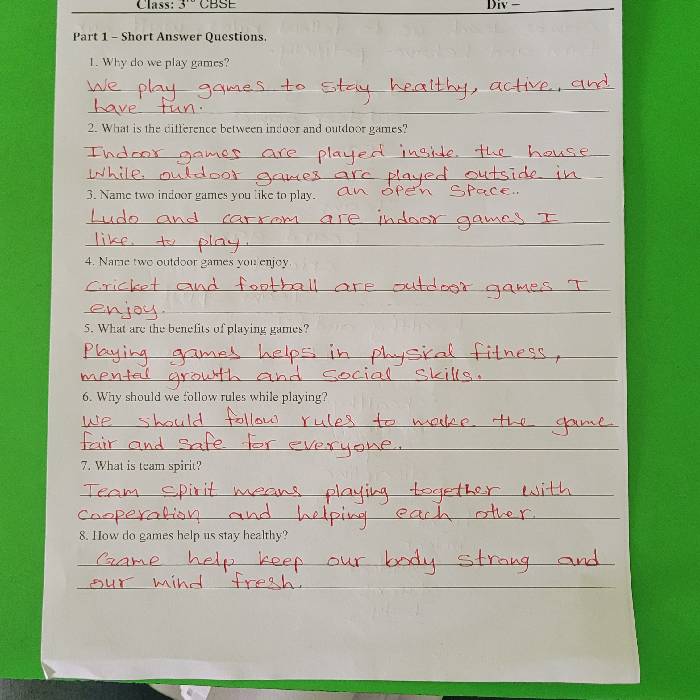 Class: 3rd CBSE Div –
Part 1 – Short Answer Questions.
1. Why do we play games?
We play games to stay healthy, active, and
have fun.
2. What is the difference between indoor and outdoor games?
Indoor games are played inside the house
While outdoor games are played outside in
an open space..
3. Name two indoor games you like to play.
Ludo and carrom are indoor games I
like to play.
4. Name two outdoor games you enjoy.
Cricket and football are outdoor games I
enjoy.
5. What are the benefits of playing games?
Playing games helps in physical fitness,
mental growth and social skills.
6. Why should we follow rules while playing?
We should follow rules to make the game
fair and safe for everyone..
7. What is team spirit?
Team spirit means playing together with
Cooperation and helping each other.
8. How do games help us stay healthy?
Game help keep our body strong and
our mind fresh.